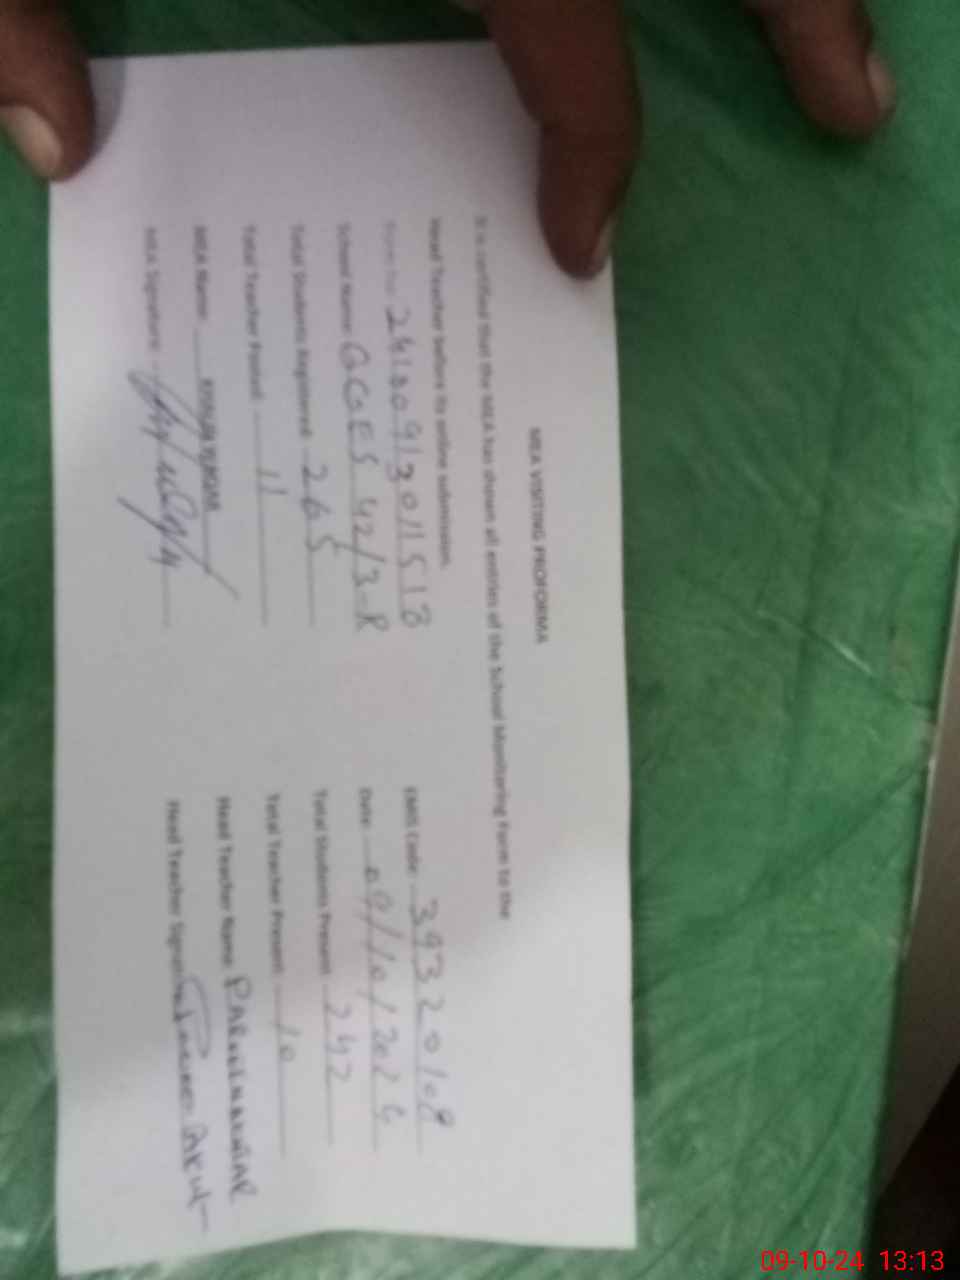 MEA VISITING PROFORMA
It is certified that the MEA has shown all entries of the School Monitoring Form to the
Head Teacher before its online submission.
Form No: EMIS Code: 39320108
School Name: GGES 42/3-R Date: 09/10/2024
Total Students Registered: 265 Total Students Present 242
Total Teacher Posted: 11 Total Teacher Present: 10
MEA Name: Head Teacher Name PARVEEN AKHTAR
MEA Signature: Head Teacher Signature
09-10-24 13:13